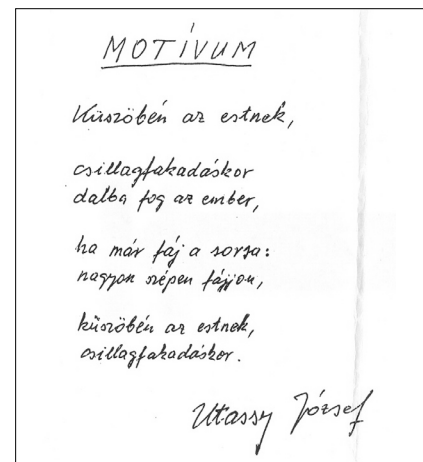 MOTÍVUM
Küszöbén az estnek,
csillagfakadáskor
dalba fog az ember,
ha már fáj a sorsa:
nagyon szépen fájjon,
küszöbén az estnek,
csillagfakadáskor.
Utassy József